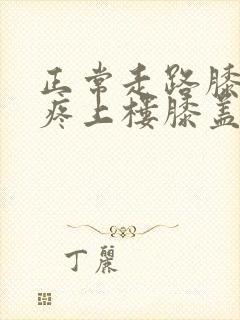 正常走路膝
疼上楼膝盖
丁丽